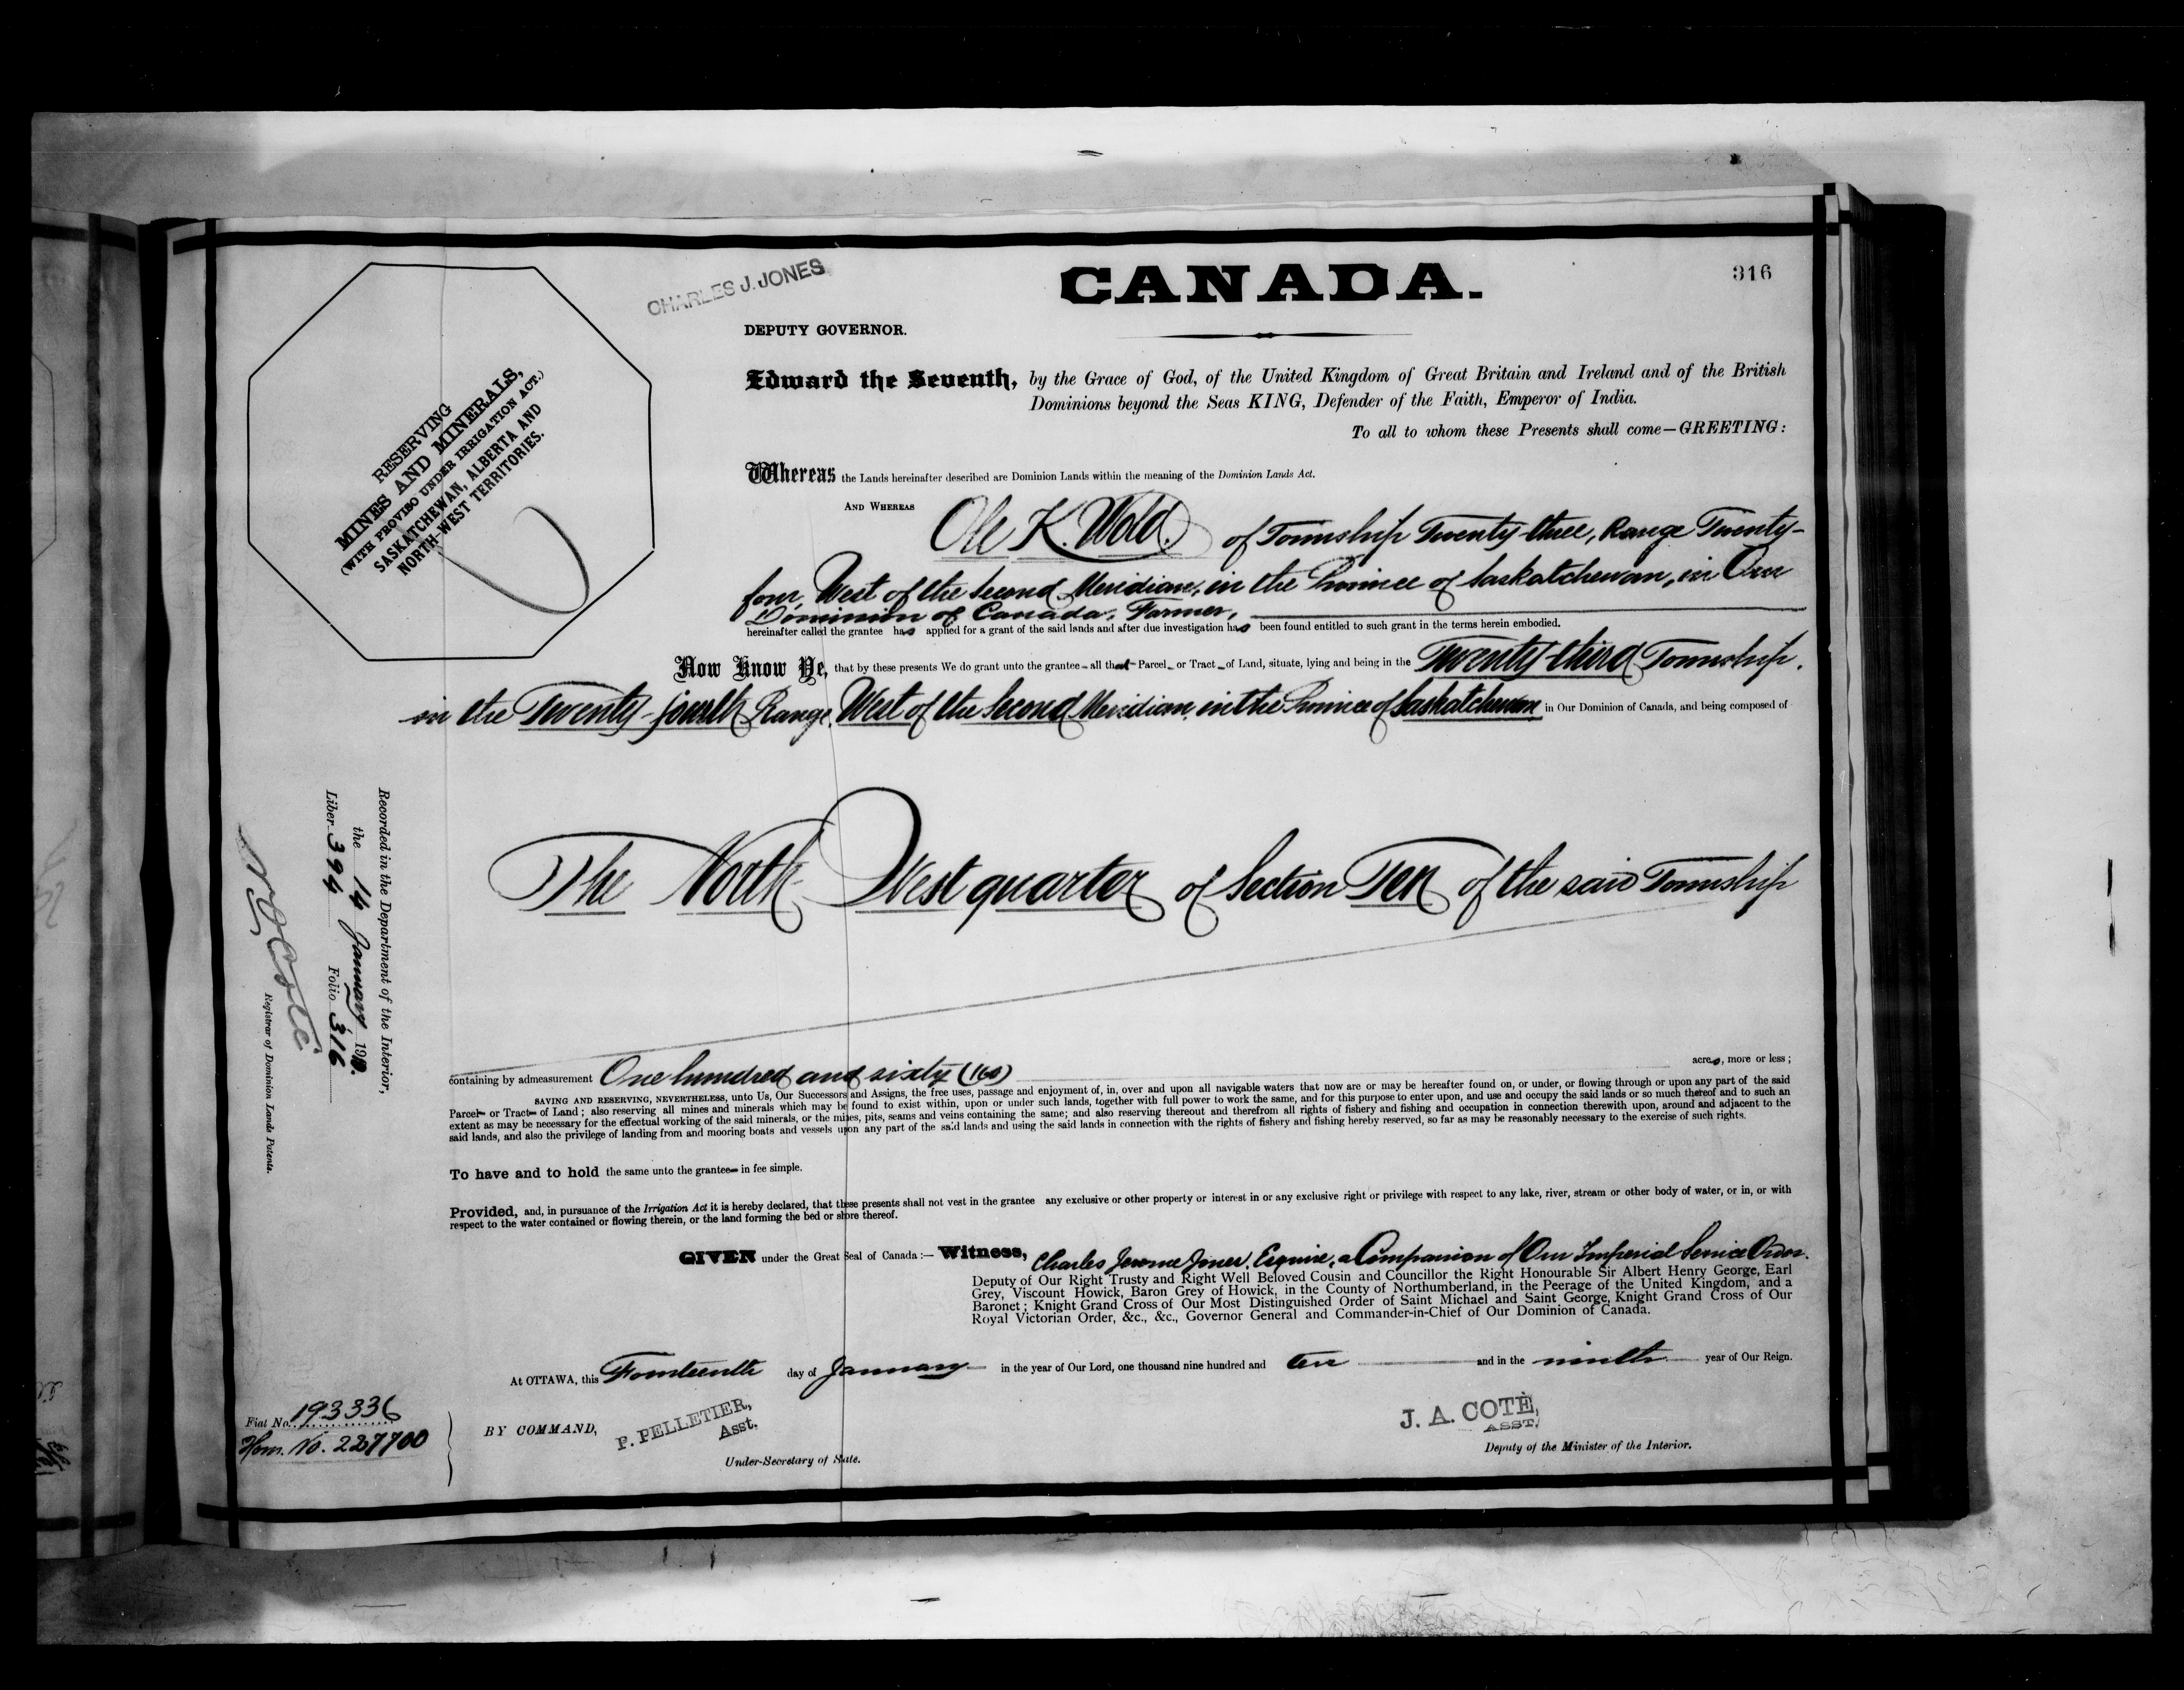 316
CHARLES J. JONES
CANADA.
DEPUTY GOVERNOR.
Edward the Seventh, by the Grace of God, of the United Kingdom of Great Britain and Ireland and of the British
Dominions beyond the Seas KING, Defender of the Faith, Emperor of India.
To all to whom these Presents shall come—GREETING:
RESERVING
MINES AND MINERALS,
(WITH PROVISO UNDER IRRIGATION ACT.)
SASKATCHEWAN, ALBERTA AND
NORTH-WEST TERRITORIES.
Whereas the Lands hereinafter described are Dominion Lands within the meaning of the Dominion Lands Act.
AND WHEREAS Ole K. Wold. of Township Twenty-three, Range Twenty-
four, West of the Second Meridian, in the Province of Saskatchewan, in Our
Dominion of Canada, Farmer,
hereinafter called the grantee has applied for a grant of the said lands and after due investigation has been found entitled to such grant in the terms herein embodied.
Now Know Ye, that by these presents We do grant unto the grantee - all that Parcel - or Tract - of Land, situate, lying and being in the Twenty-third Township.
in the Twenty-fourth Range, West of the Second Meridian, in the Province of Saskatchewan in Our Dominion of Canada, and being composed of
The North West quarter of Section Ten of the said Township
containing by admeasurement One hundred and sixty (160) acres, more or less;
SAVING AND RESERVING, NEVERTHELESS, unto Us, Our Successors and Assigns, the free uses, passage and enjoyment of, in, over and upon all navigable waters that now are or may be hereafter found on, or under, or flowing through or upon any part of the said
Parcel- or Tract- of Land; also reserving all mines and minerals which may be found to exist within, upon or under such lands, together with full power to work the same, and for this purpose to enter upon, and use and occupy the said lands or so much thereof and to such an
extent as may be necessary for the effectual working of the said minerals, or the mines, pits, seams and veins containing the same; and also reserving thereout and therefrom all rights of fishery and fishing and occupation in connection therewith upon, around and adjacent to the
said lands, and also the privilege of landing from and mooring boats and vessels upon any part of the said lands and using the said lands in connection with the rights of fishery and fishing hereby reserved, so far as may be reasonably necessary to the exercise of such rights.
To have and to hold the same unto the grantee- in fee simple.
Provided, and, in pursuance of the Irrigation Act it is hereby declared, that these presents shall not vest in the grantee any exclusive or other property or interest in or any exclusive right or privilege with respect to any lake, river, stream or other body of water, or in, or with
respect to the water contained or flowing therein, or the land forming the bed or shore thereof.
GIVEN under the Great Seal of Canada:— Witness, Charles Jerome Jones, Esquire, a Companion of Our Imperial Service Order.
Deputy of Our Right Trusty and Right Well Beloved Cousin and Councillor the Right Honourable Sir Albert Henry George, Earl
Grey, Viscount Howick, Baron Grey of Howick, in the County of Northumberland, in the Peerage of the United Kingdom, and a
Baronet; Knight Grand Cross of Our Most Distinguished Order of Saint Michael and Saint George, Knight Grand Cross of Our
Royal Victorian Order, &c., &c., Governor General and Commander-in-Chief of Our Dominion of Canada.
At OTTAWA, this Fourteenth day of January in the year of Our Lord, one thousand nine hundred and ten and in the ninth year of Our Reign.
BY COMMAND,
P. PELLETIER,
Asst.
Under-Secretary of State.
J. A. COTÉ,
ASST.
Deputy of the Minister of the Interior.
Recorded in the Department of the Interior,
the 14 January 1910.
Liber 394 Folio 316
Coté
Registrar of Dominion Lands Patents.
Fiat No. 193336
Hom. No. 227700